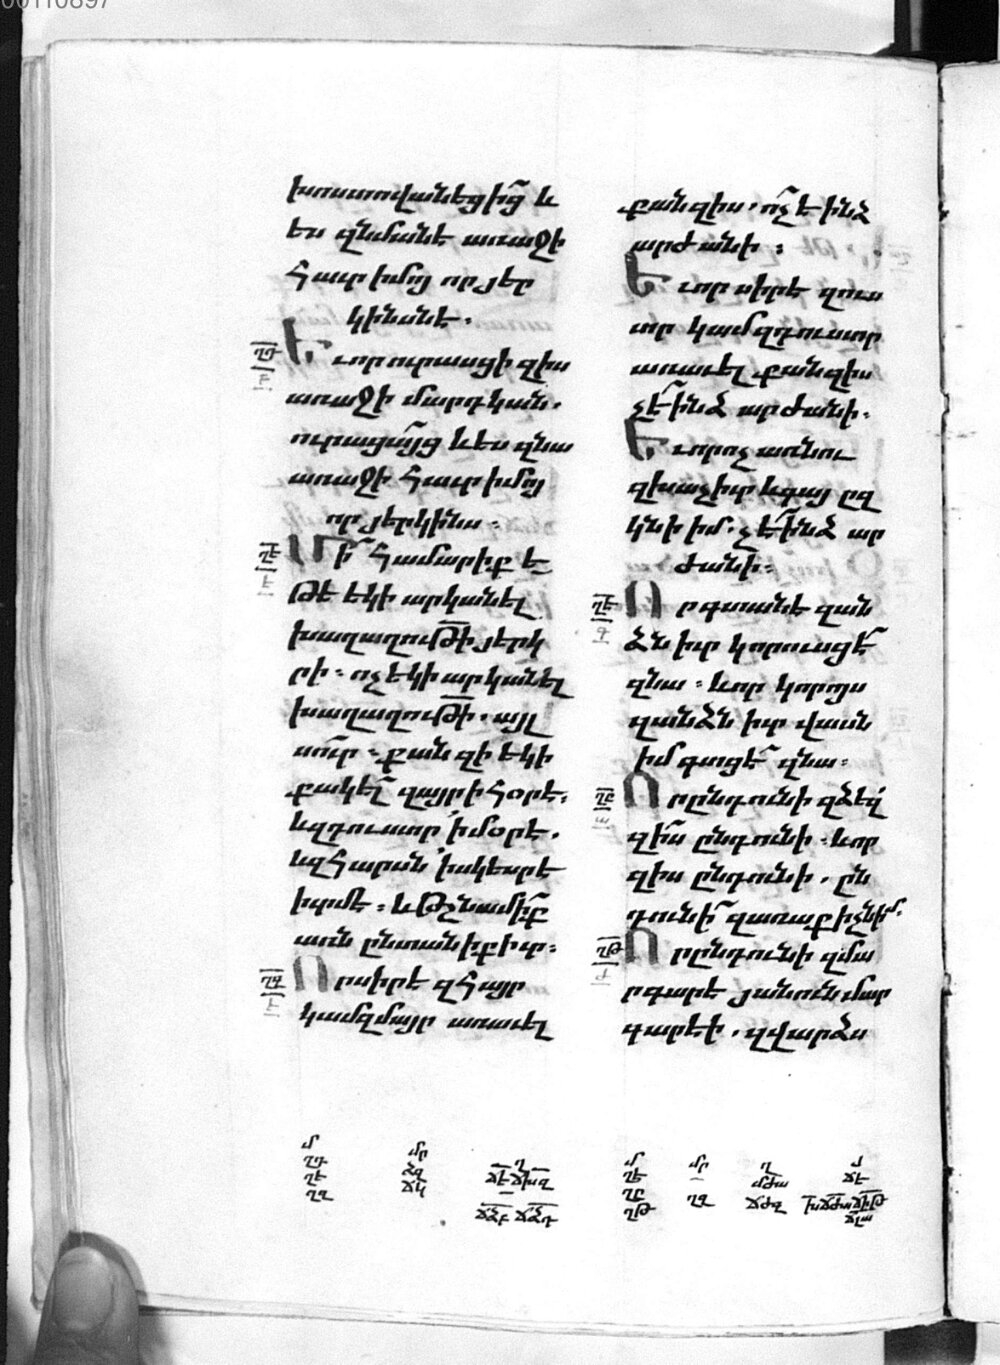 00110897
խոստովանեցից և
ես զնմանէ առաջի
հաւր իմոյ որ յեր
կինսնէ.
Եւ որ ուրասցի զիս
առաջի մարդկան.
ուրացայց և ես զնա
առաջի հաւր իմոյ
որ յերկինս։
Մի համարիք ե
թէ եկի արկանել
խաղաղութի յերկ
րի։ ոչ եկի արկանել
խաղաղութի. այլ
սուր։ քանզի եկի
բակել զայր ի հօրէ։
և զդուստր ՚ի մօրէ.
և զհարսն ՚ի սկեսրէ
իւրմէ։ և թշնամիք
առն ընտանիք իւր։
Որ սիրէ զհայր
կամ զմայր առաւել
քան զիս. ոչ է ինձ
արժանի։
Եւ որ սիրէ զուս
տր կամ զդուստր
առաւել քան զիս
չէ ինձ արժանի.
Եւ որ ոչ առնու
զխաչիւր և գայ ըզ
կնի իմ. չէ ինձ ար
ժանի։
Որ գտանէ զան
ձն իւր կորուսցէ
զնա։ և որ կորոյս
զանձն իւր վասն
իմ գտցէ զնա։
Որ ընդունի զձեզ
զիս ընդունի։ և որ
զիս ընդունի. ըն
դունի զառաքիչն իմ.
Որ ընդունի զմա
րգարէ յանուն մար
գարէի. զվարձս